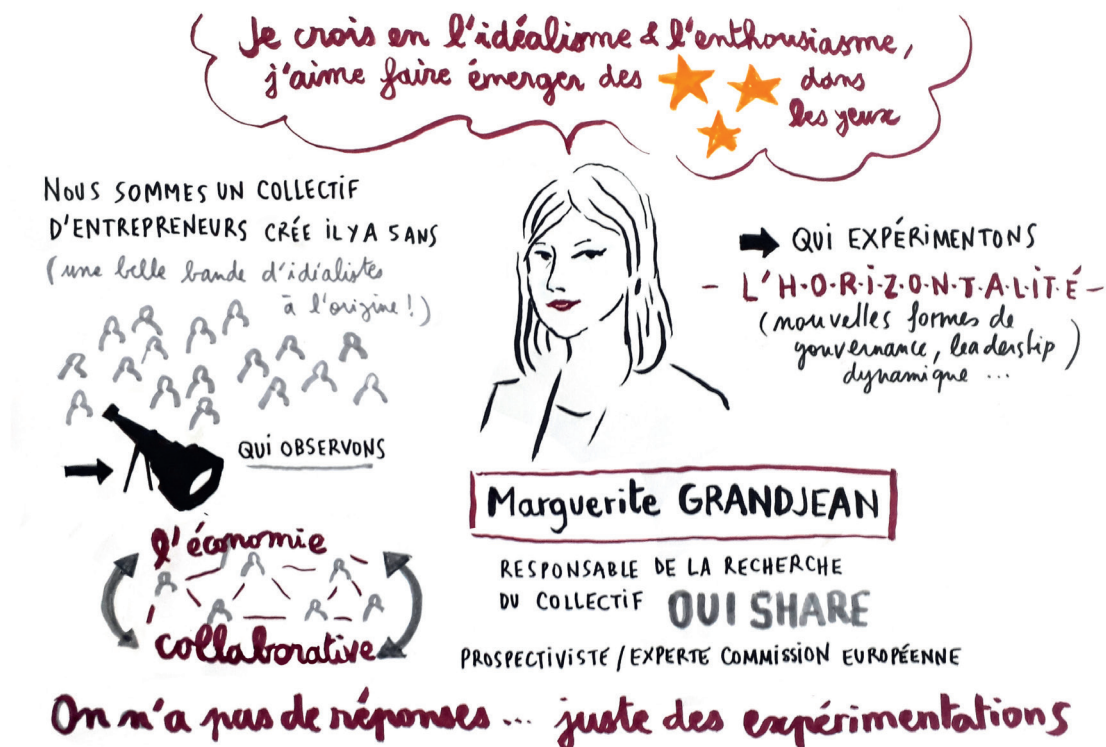 Je crois en l'idéalisme & l'enthousiasme,
j'aime faire émerger des dans
les yeux
NOUS SOMMES UN COLLECTIF
D'ENTREPRENEURS CRÉE IL Y A 5 ANS
(une belle bande d'idéalistes
à l'origine!)
QUI OBSERVONS
l'économie
collaborative
QUI EXPÉRIMENTONS
- L'H.O.R.I.Z.O.N.T.A.L.I.T.É -
(nouvelles formes de
gouvernance, leadership)
dynamique ...
Marguerite GRANDJEAN
RESPONSABLE DE LA RECHERCHE
DU COLLECTIF OUI SHARE
PROSPECTIVISTE / EXPERTE COMMISSION EUROPÉENNE
On n'a pas de réponses ... juste des expérimentations